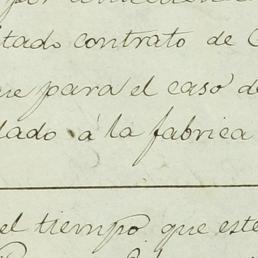 por
tado contrato de C
ue para el caso de
dado à la fabrica
el tiempo que este